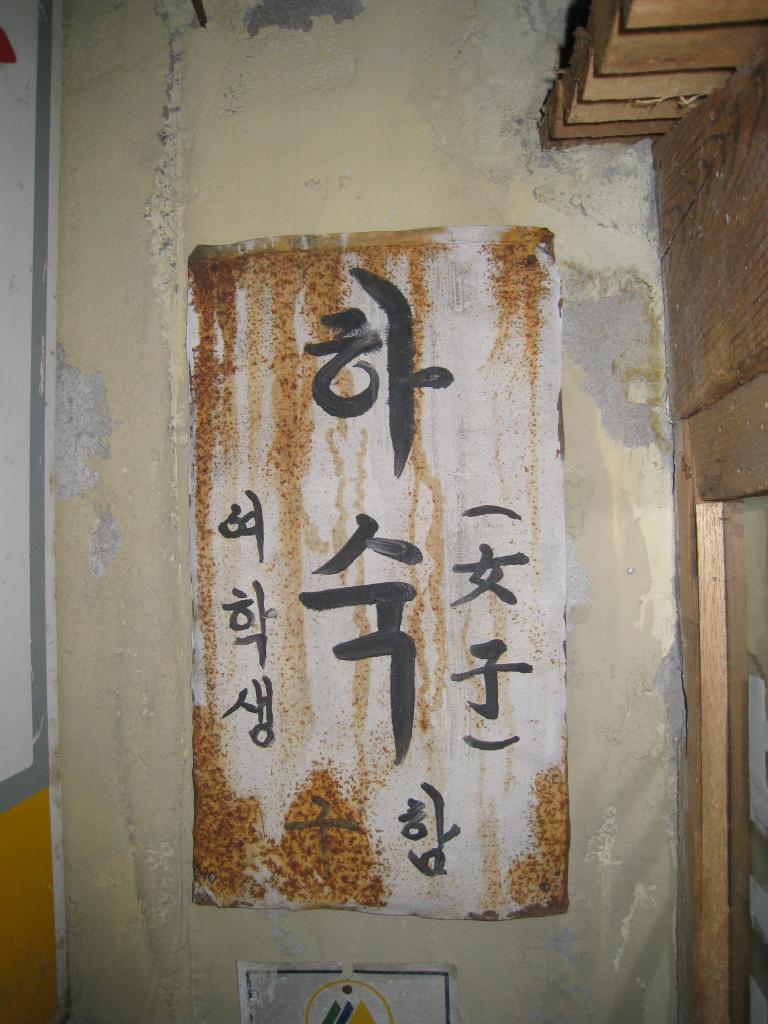 하숙
여학생
(女子)
구함